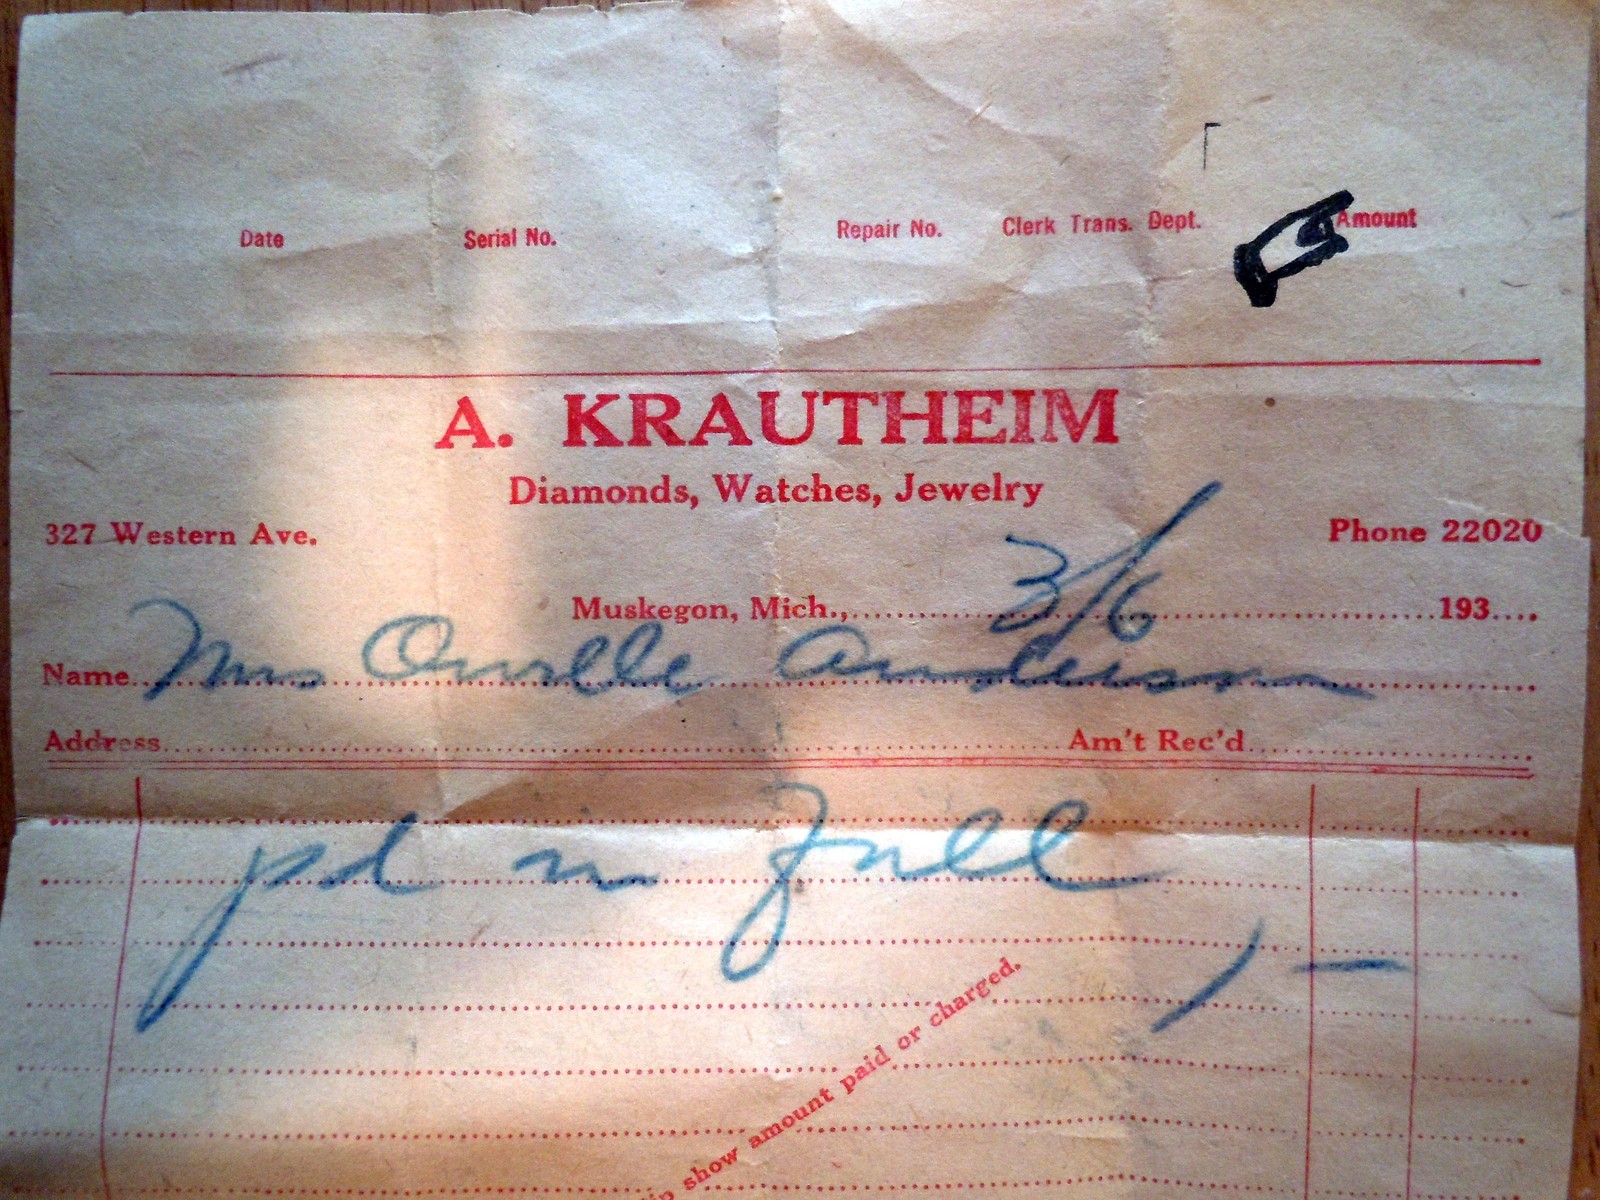 Date Serial No. Repair No. Clerk Trans. Dept. Amount
A. KRAUTHEIM
Diamonds, Watches, Jewelry
327 Western Ave. Phone 22020
Muskegon, Mich., 3/6 193
Name Mrs Orville Anderson
Address Am't Rec'd
pd in full
1 —
show amount paid or charged.